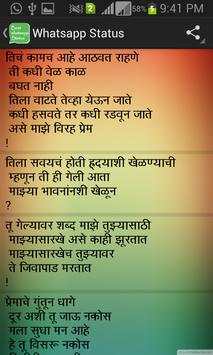 9:41 PM
Whatsapp Status
तिचं कामच आहे आठवत राहणे
ती कधी वेळ काळ
बघत नाही
तिला वाटते तेव्हा येऊन जाते
कधी हसवते तर कधी रडवून जाते
असे माझे विरह प्रेम
!
तिला सवयचं होती ह्रदयाशी खेळण्याची
म्हणून ती ही गेली आता
माझ्या भावनांनशी खेळून
?
तू गेल्यावर शब्द माझे तुझ्यासाठी
माझ्यासारखे असे काही झूरतात
माझ्यासारखेच तुझ्यावर
ते जिवापाड मरतात
!
प्रेमाचे गुंतून धागे
दूर अशी तू जाऊ नकोस
मला सुधा मन आहे
हे तू विसरू नकोस